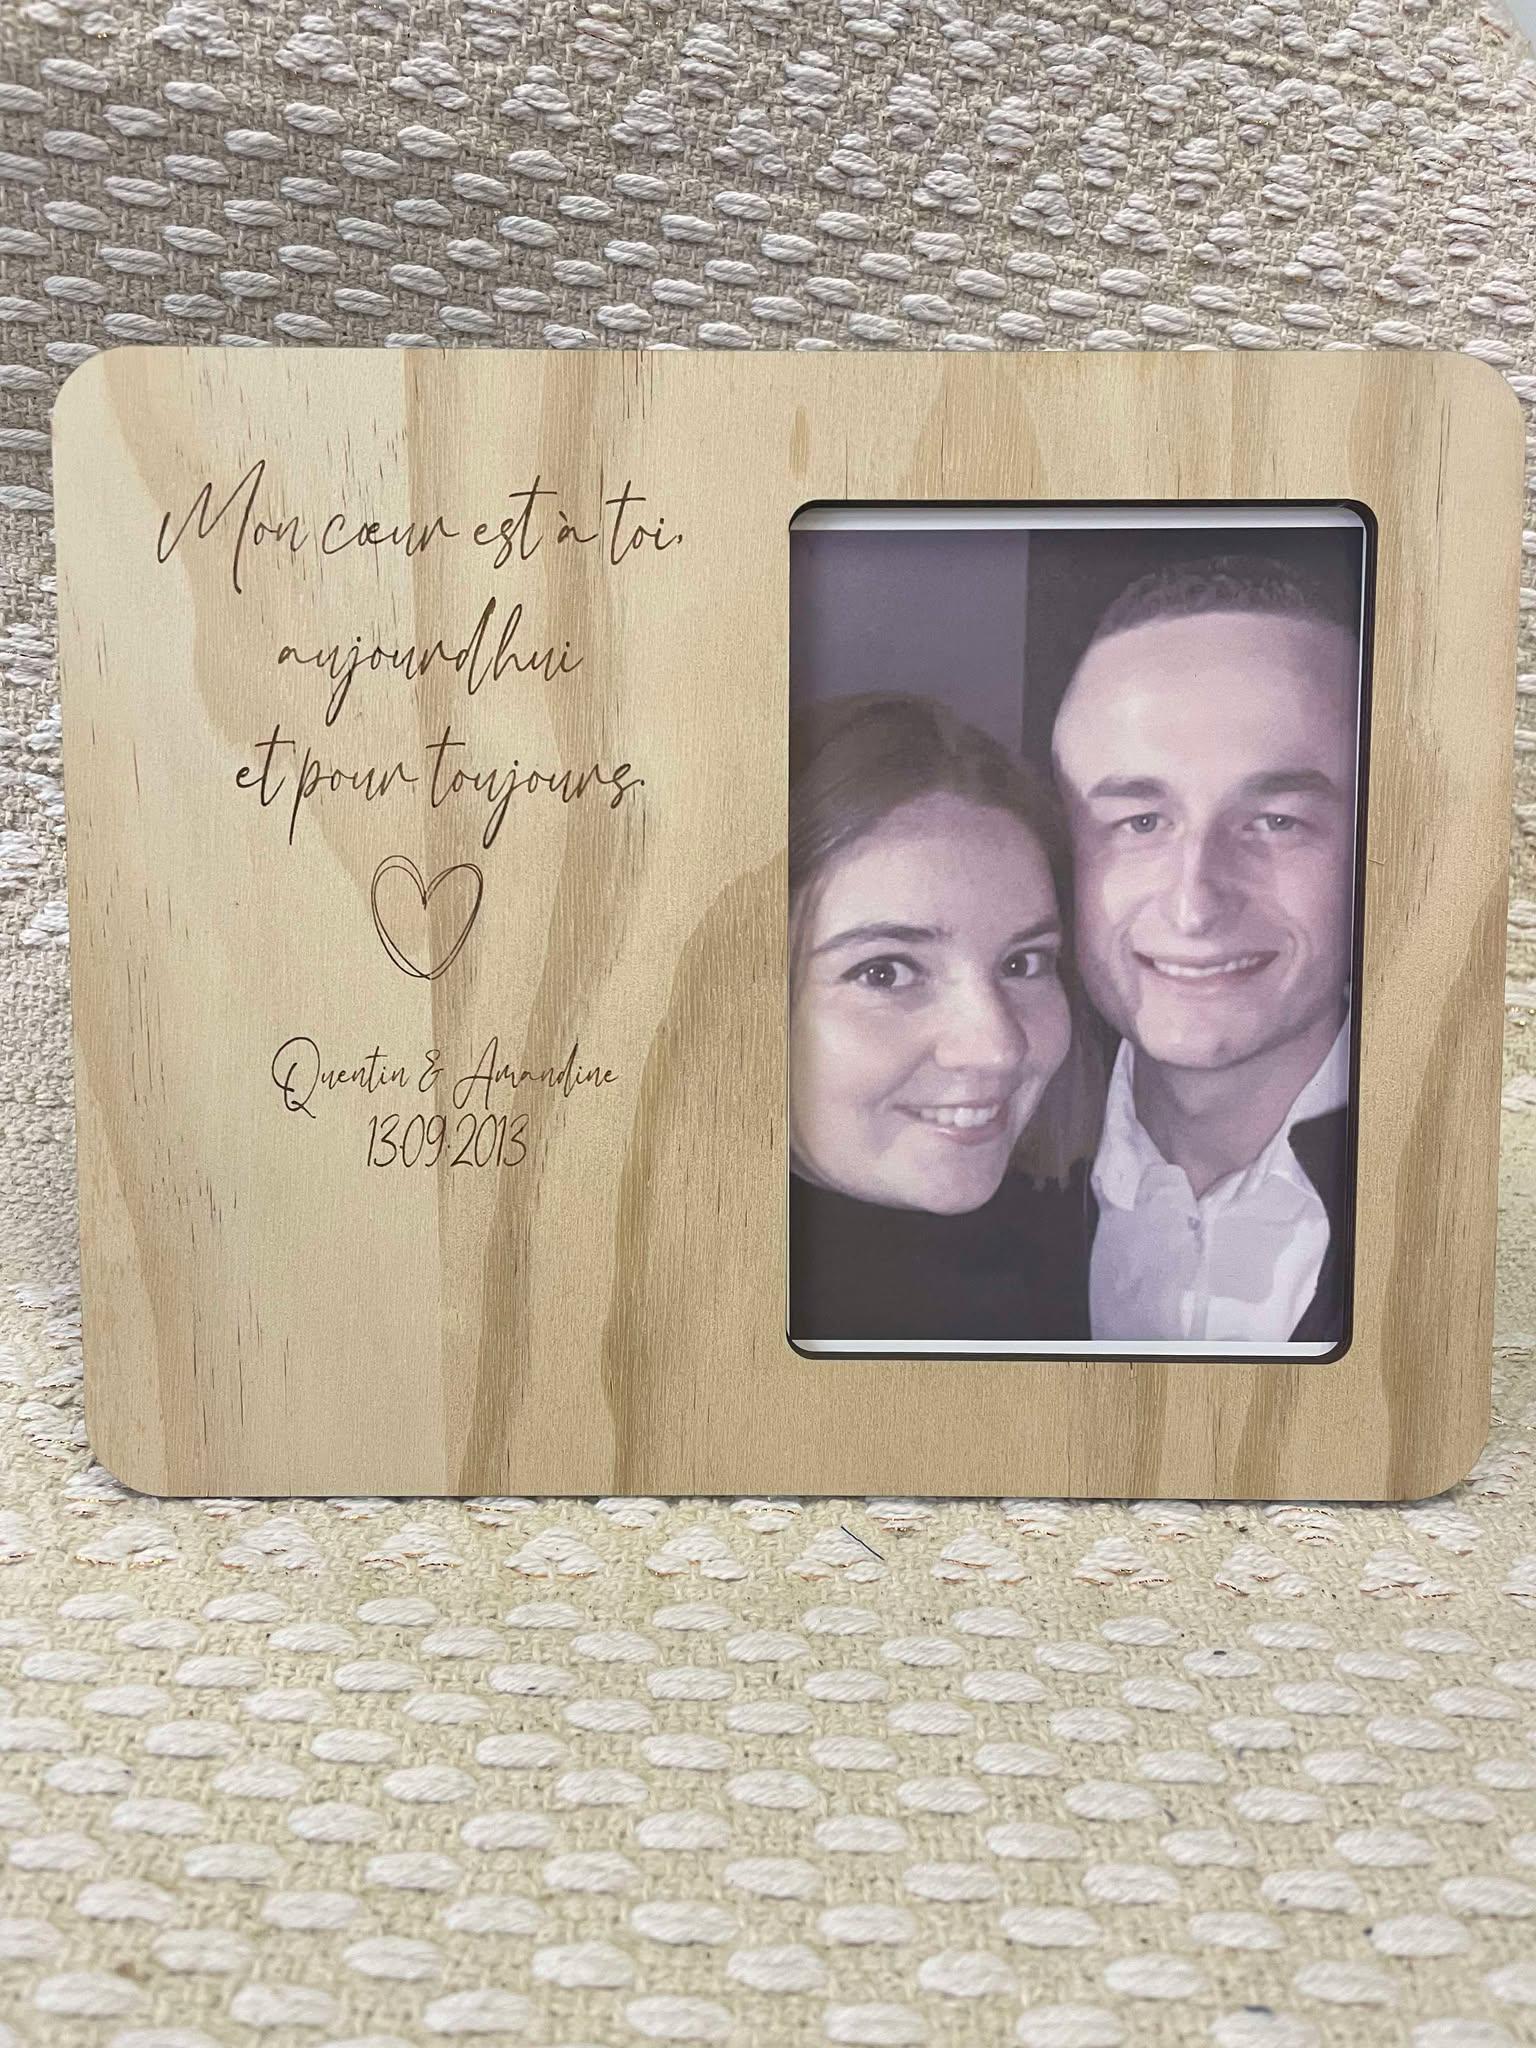 Mon cœur est à toi,
aujourdhui
et pour toujours.
Quentin & Amandine
13.09.2013